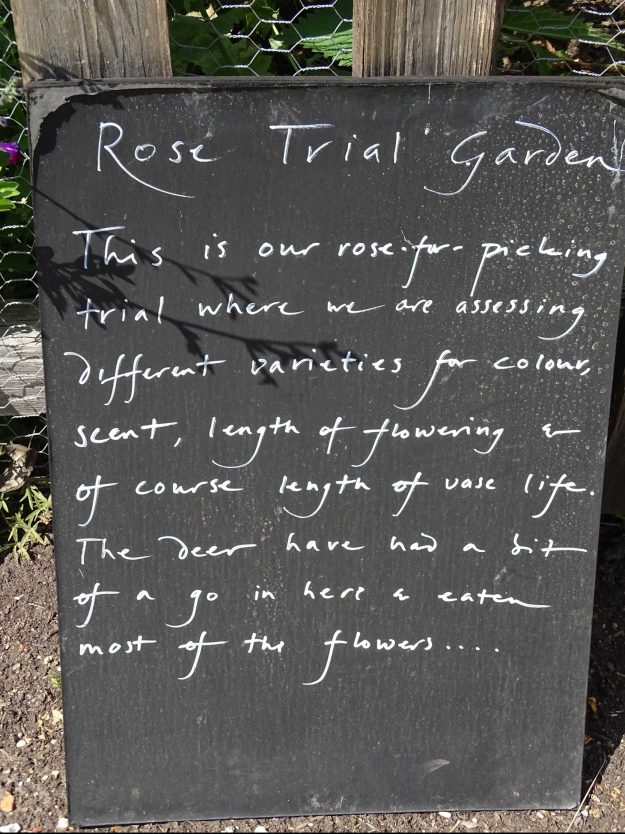 Rose Trial Garden
This is our rose-for-picking
trial where we are assessing
different varieties for colour,
scent, length of flowering &
of course length of vase life.
The deer have had a bit
of a go in here & eaten
most of the flowers....